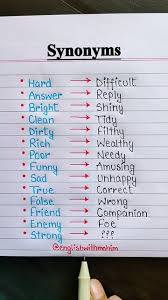 Synonyms
• Hard → Difficult
• Answer → Reply
• Bright → Shiny
• Clean → Tidy
• Dirty → Filthy
• Rich → Wealthy
• Poor → Needy
• Funny → Amusing
• Sad → Unhappy
• True → Correct
• False → Wrong
• Friend → Companion
• Enemy → Foe
• Strong → ???
@englishwithmahim